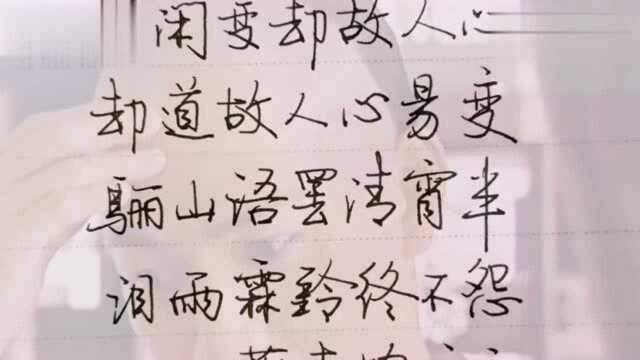 闲变却故人心
却道故人心易变
骊山语罢清宵半
泪雨霖铃终不怨